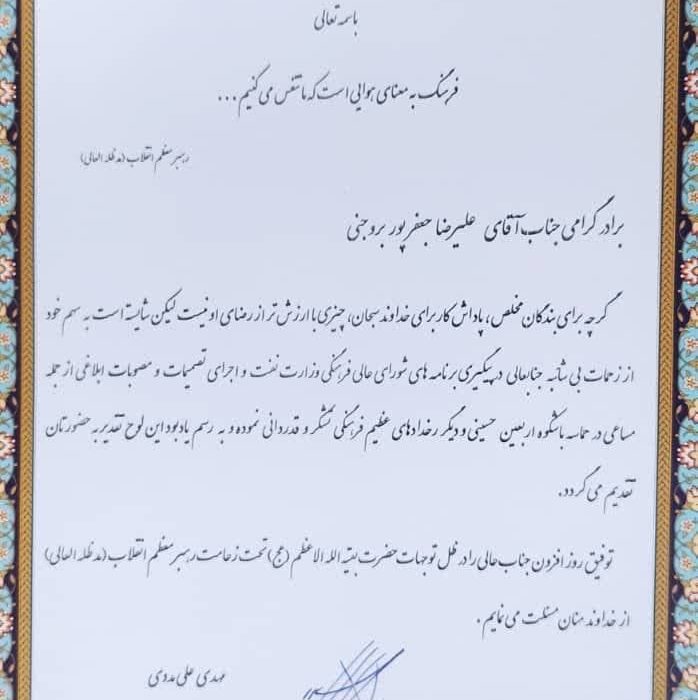 باسمه تعالی
فرهنگ به معنای هوایی است که ما تنفس می کنیم ...
رهبر معظم انقلاب (مدظله العالی)
برادر گرامی جناب آقای علیرضا جعفرپور بروجنی
گرچه برای بندگان مخلص، پاداش کار برای خداوند سبحان، چیزی با ارزش تر از رضای او نیست لیکن شایسته است به سهم خود
از زحمات بی شائبه جنابعالی در پیگیری برنامه های شورای عالی فرهنگی وزارت نفت و اجرای تصمیمات و مصوبات ابلاغی از جمله
مساعی در حماسه باشکوه اربعین حسینی و دیگر رخدادهای عظیم فرهنگی تشکر و قدردانی نموده و به رسم یادبود این لوح تقدیر به حضورتان
تقدیم می گردد.
توفیق روز افزون جناب عالی را در ظل توجهات حضرت بقیه الله الاعظم (عج) تحت زعامت رهبر معظم انقلاب (مدظله العالی)
از خداوند منان مسئلت می نمایم.
مهدی علی مددی